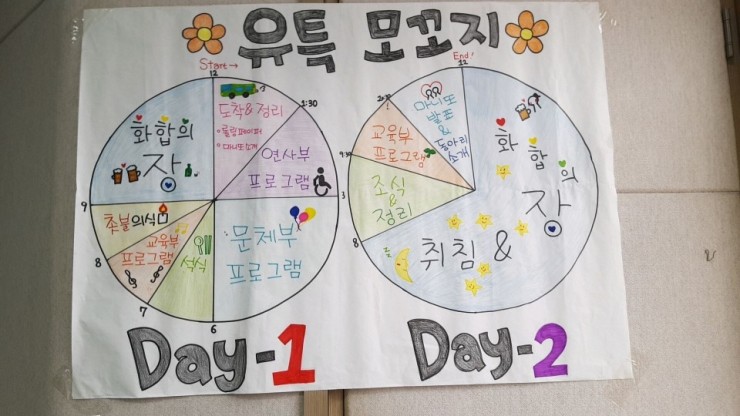 유특 모꼬지
Start→
12
도착&정리
•롤링페이퍼
•마니또소개
1:30
연사부
프로그램
3
문체부
프로그램
6
석식
7
교육부
프로그램
8
촛불의식
9
화합의
장
Day-1
End!
12
화
합
의
장
취침 &
8
조식
&
정리
9:30
교육부
프로그램
마니또
발표
&
동아리
소개
Day-2